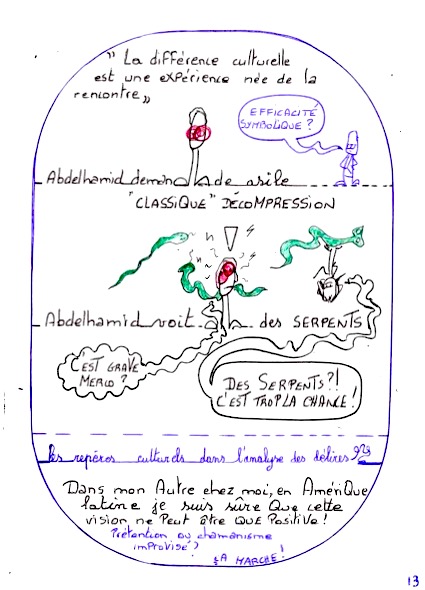 " La différence culturelle
est une expérience née de la
rencontre "
EFFICACITÉ
SYMBOLIQUE ?
Abdelhamid demande asile
"CLASSIQUE" DÉCOMPRESSION
Abdelhamid voit des SERPENTS
C'EST GRAVE
MERCO ?
DES SERPENTS?!
C'EST TROP LA CHANCE !
Les repères culturels dans l'analyse des délires
Dans mon Autre chez moi, en AméRiQue
latine je suis sûre Que cette
vision ne Peut être que Positive !
Prétention ou chamanisme
improvisé ?
ÇA MARCHE !
13